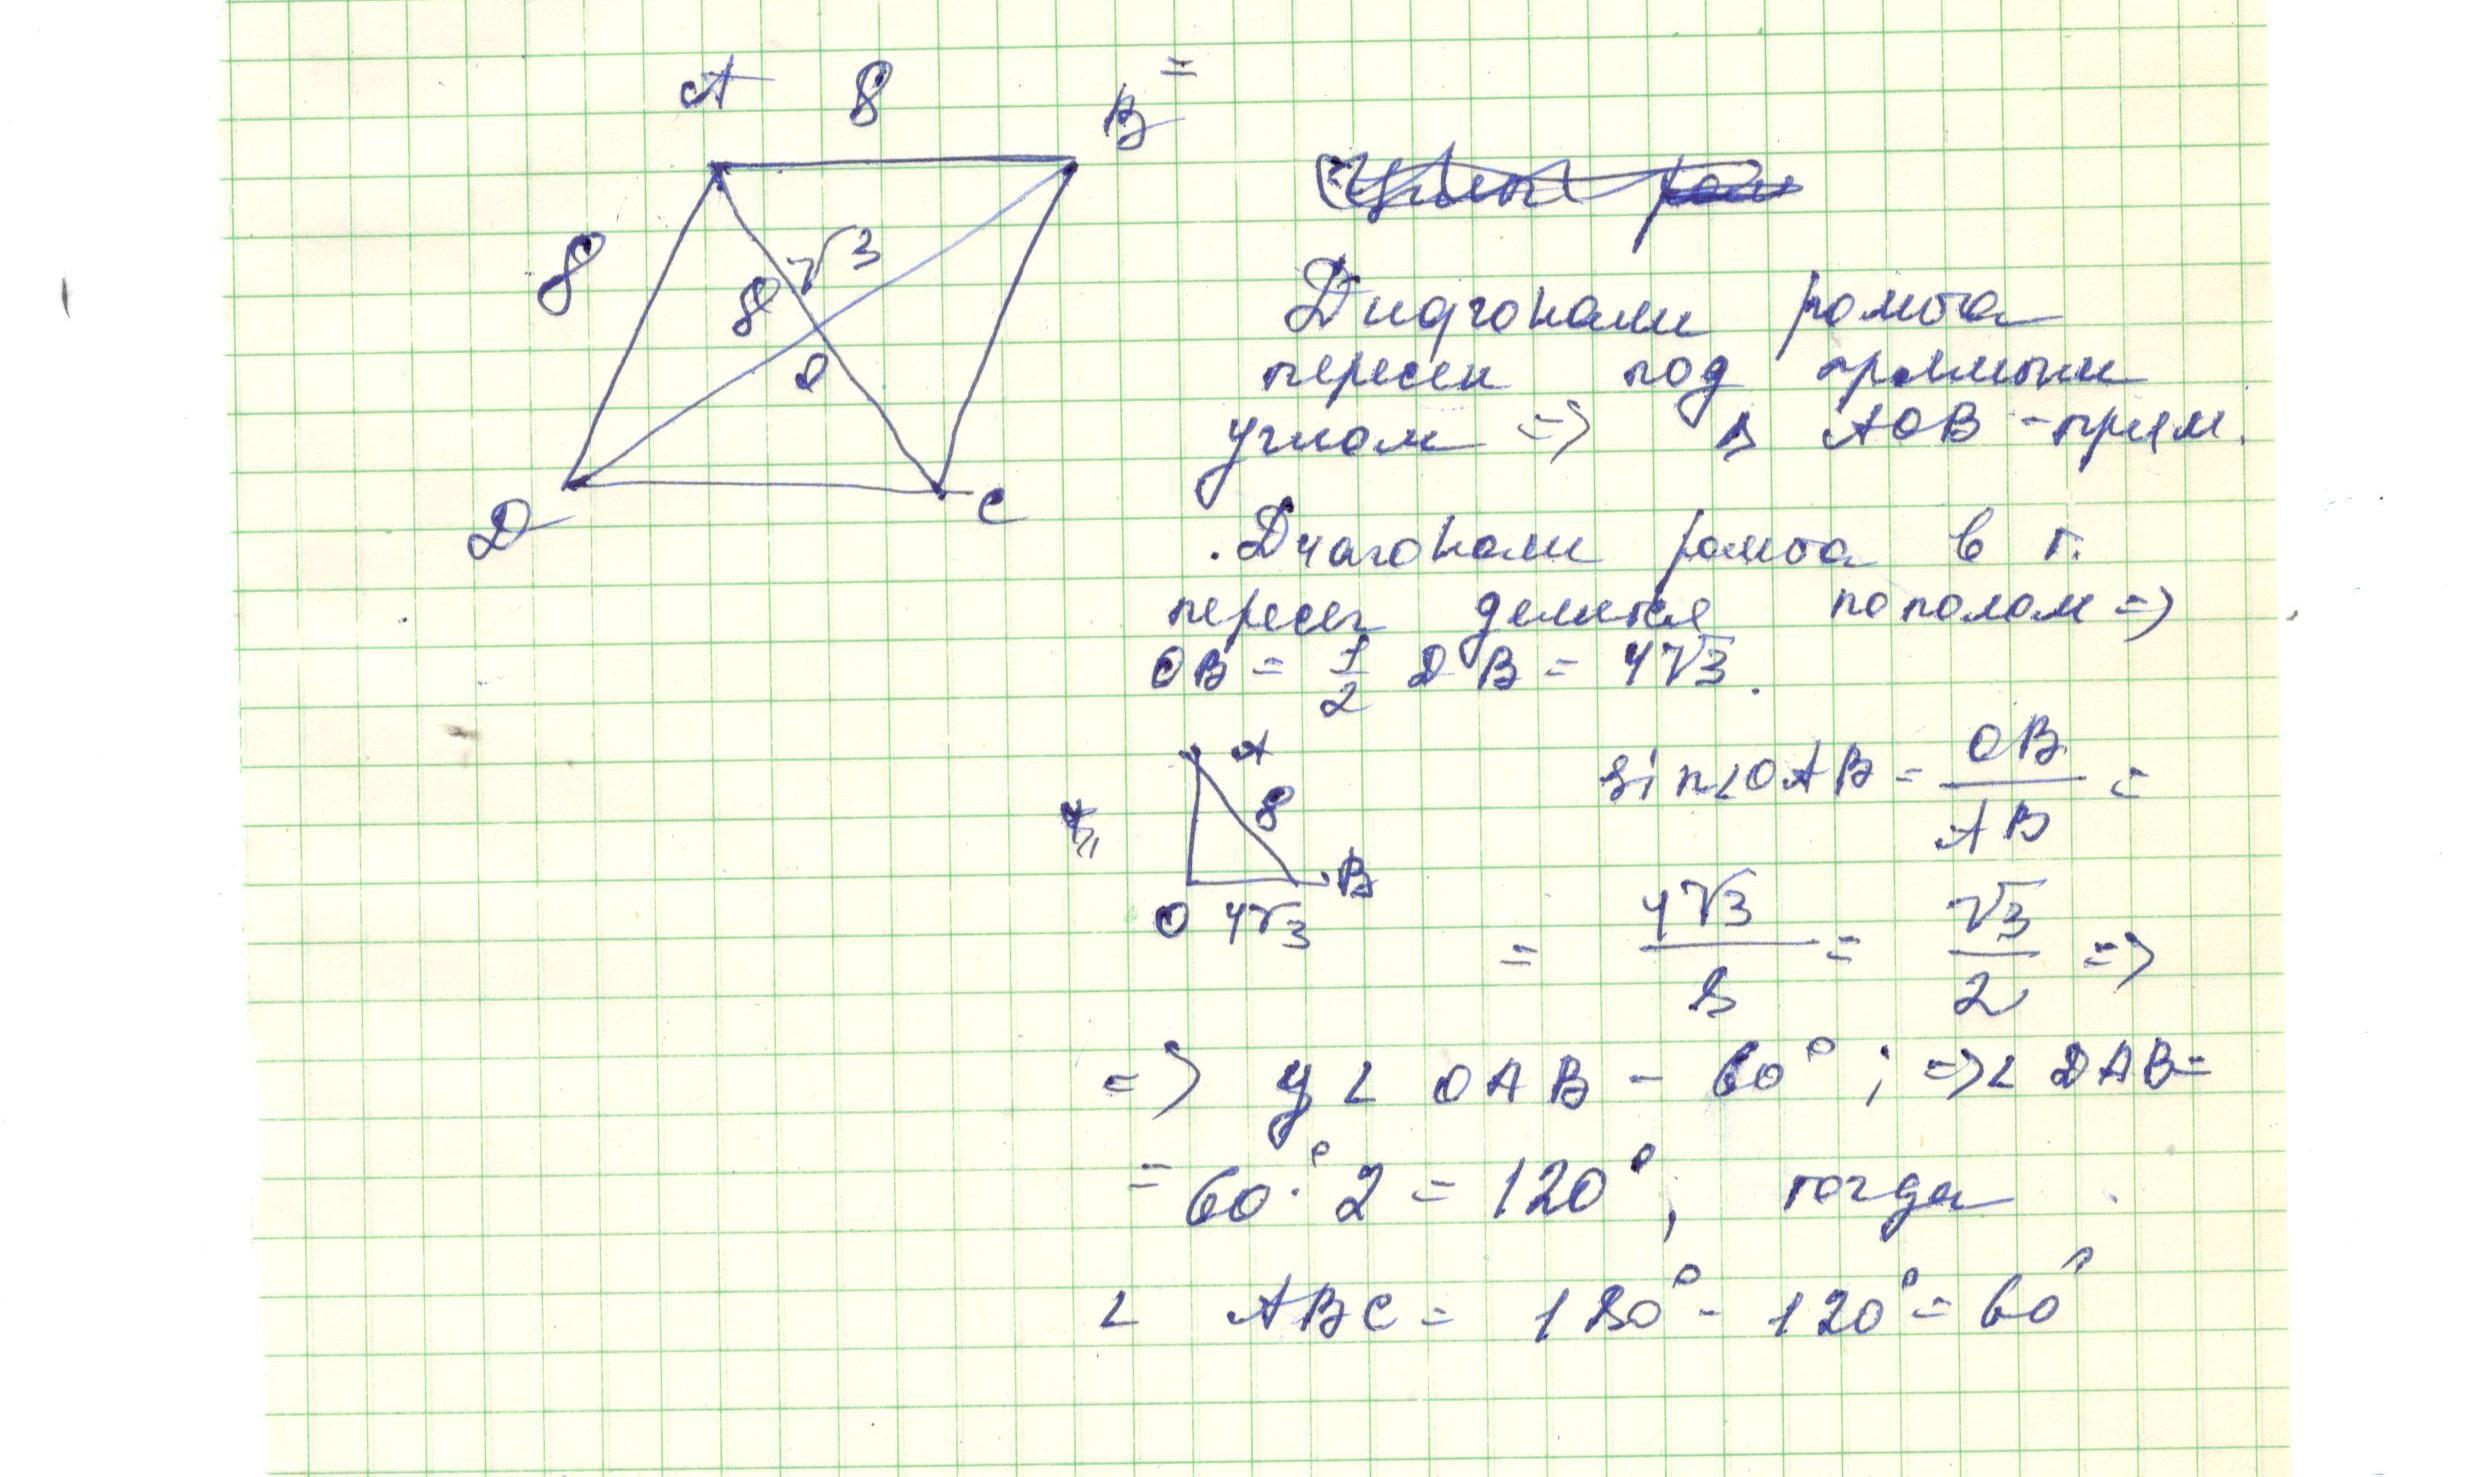 A 8 B =
8
8√3
O
D C
Диагонали ромба
пересек под прямым
углом => Δ AOB - прям.
. Диагонали ромба в т.
пересеч делится пополам =>
OB = 1/2 DB = 4√3.
A
8
B
O 4√3
sin∠OAB = OB/AB =
= 4√3/8 = √3/2 =>
=> У ∠ OAB - 60° ; => ∠ DAB =
= 60°· 2 = 120°, тогда
∠ ABC = 180° - 120° = 60°